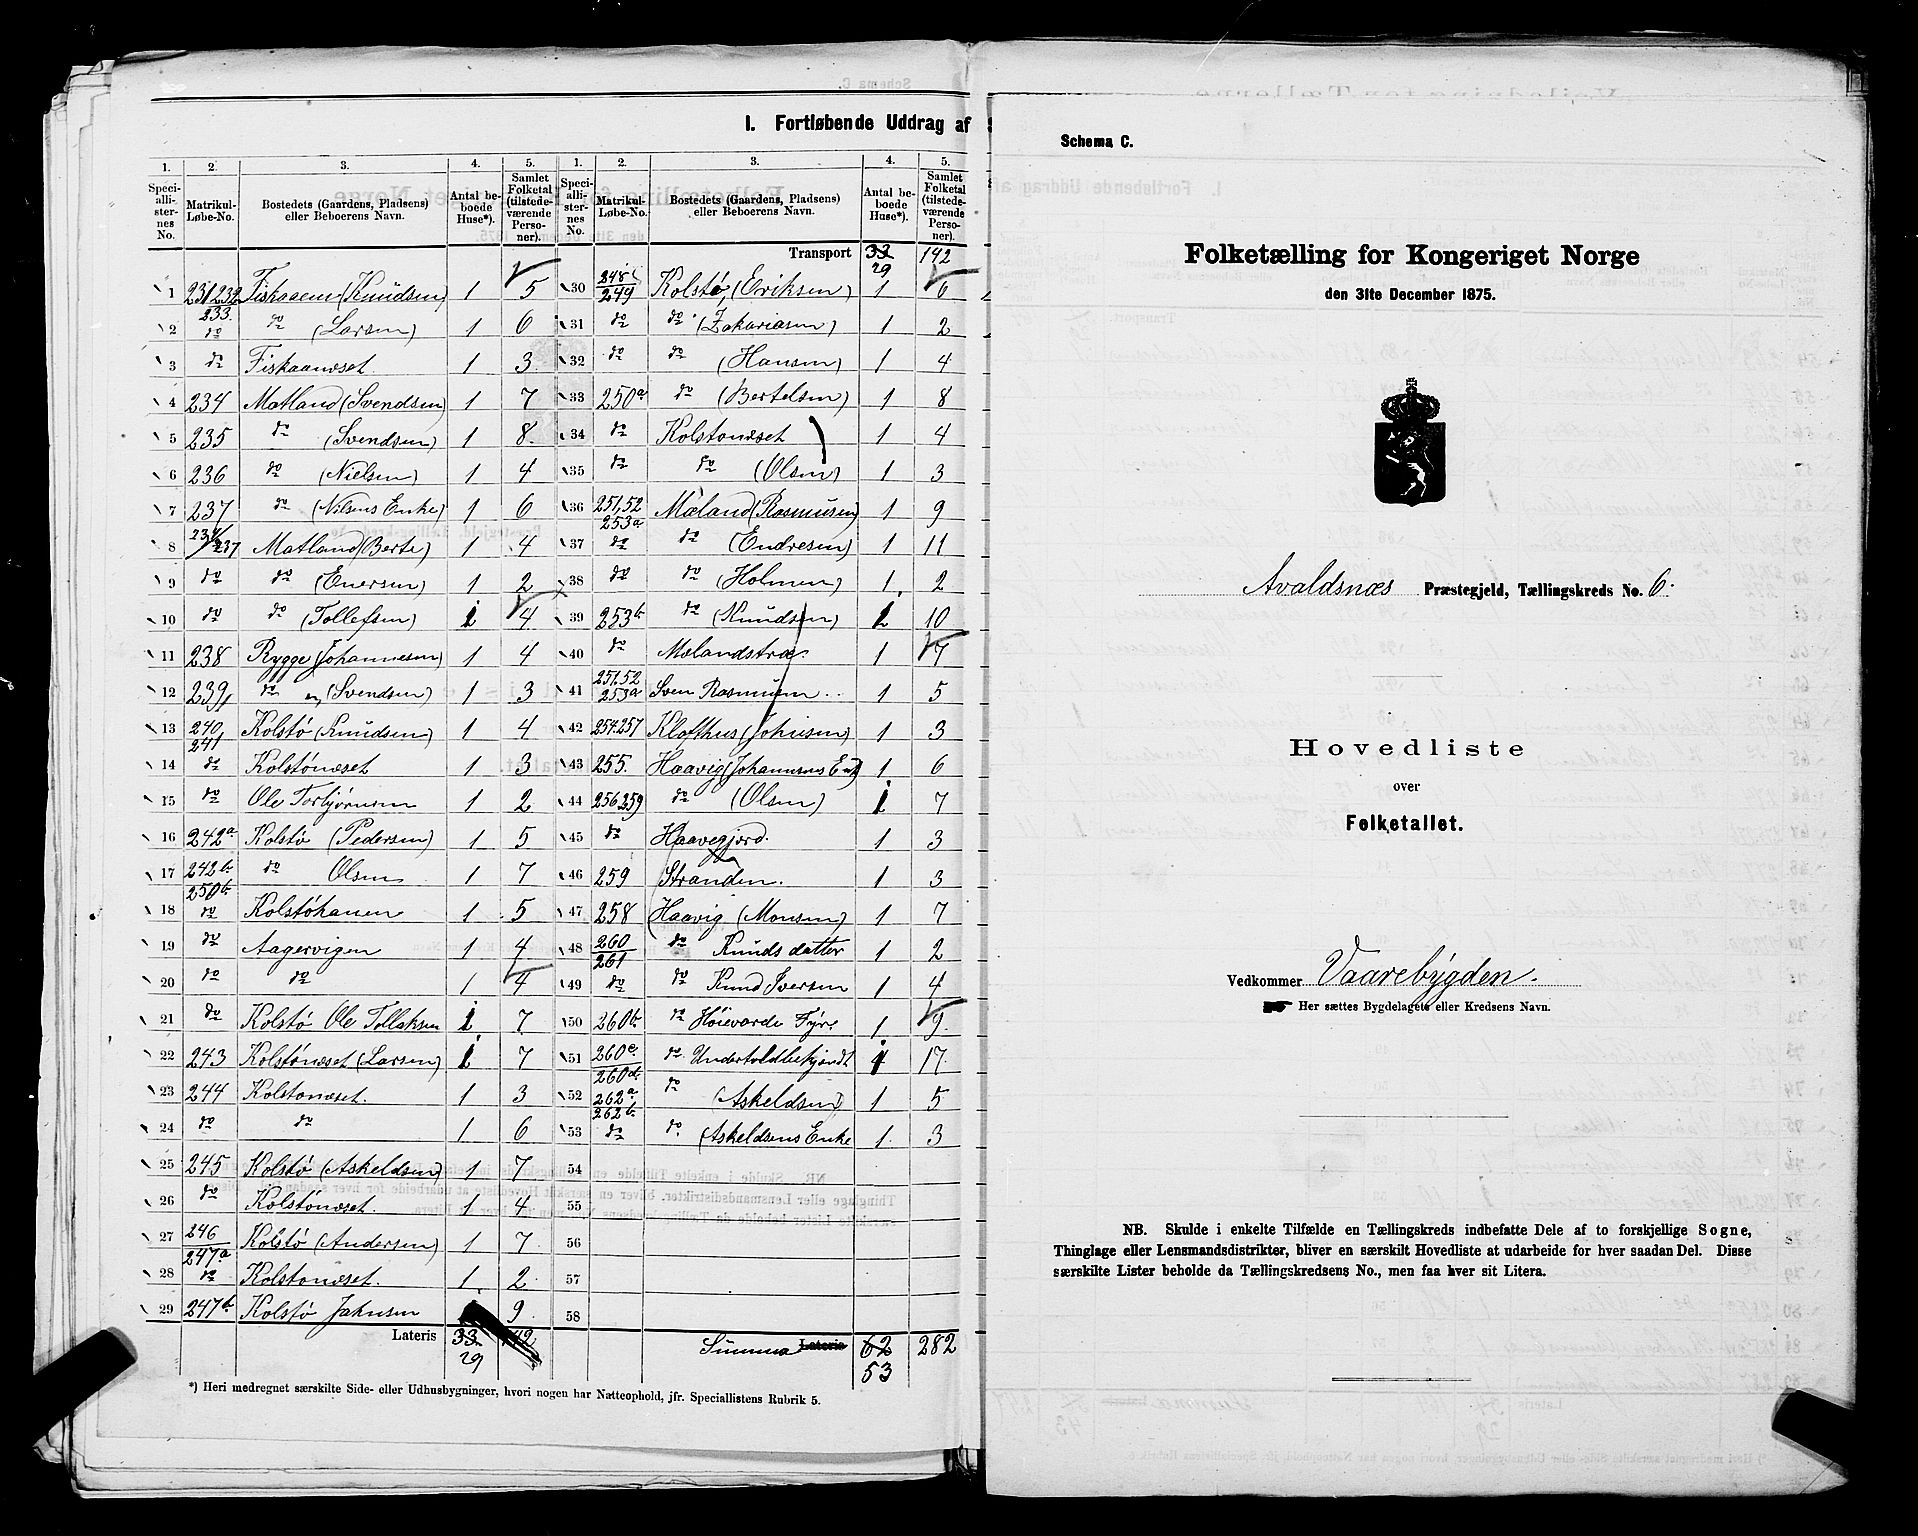 I. Fortløbende Uddrag af
1. 2. 3. 4. 5. 1. 2. 3. 4. 5.
Speciallisternes No. Matrikul-Løbe-No. Bostedets (Gaardens, Pladsens) eller Beboerens Navn. Antal beboede Huse*). Samlet Folketal (tilstedeværende Personer). Speciallisternes No. Matrikul-Løbe-No. Bostedets (Gaardens, Pladsens) eller Beboerens Navn. Antal beboede Huse*). Samlet Folketal (tilstedeværende Personer).
Transport 33 29 142
1 231 232 233. Fiskaaen (Knudsen) 1 5
2 do do (Larsen) 1 6
3 do Fiskaanæset 1 3
4 234 Matland (Svendsen) 1 7
5 235 do (Svendsen) 1 8
6 236 do (Nielsen) 1 4
7 237 do (Nilsens Enke) 1 6
8 Matland (Berte) 1 4
9 do do (Enersen) 1 2
10 do do (Tollefsen) 1 4
11 238 Rygge (Johannesen) 1 4
12 239 do (Svendsen) 1 3
13 240 241 Kolstø (Knudsen) 1 4
14 do Kolstönæset 1 3
15 do Ole Torbjörnsen 1 2
16 242a Kolstø (Pedersen) 1 5
17 242b 250b do Olsen 1 7
18 do Kolstöhauen 1 5
19 do Aagervigen 1 4
20 do do 1 4
21 do Kolstø Ole Tollaksen 1 7
22 243 Kolstönæset (Larsen) 1 7
23 244 Kolstonæset. 1 3
24 do do 1 6
25 245 Kolstø (Askeldsen) 1 7
26 do Kolstönæset. 1 4
27 246 247a Kolstø (Andersen) 1 7
28 do Kolstonæset. 1 2
29 247b Kolstø Jaknsen 9
Lateris 33 29 142
30 248 249 Kolstø, (Eriksen) 1 6
31 do do (Zakariasen) 1 2
32 do do (Hansen) 1 4
33 250a do (Bertelsen) 1 8
34 do Kolstonæset 1 4
35 do do (Olsen) 1 3
36 251,52 253a Mæland (Rasmusen) 1 9
37 do do (Endresen) 1 11
38 do do (Holmen) 1 2
39 253b do (Knudsen) 1 10
40 do Mælandstræ. 1 7
41 251,52 253a Sven Rasmusen 1 5
42 254.257 Klofthus (Johnsen) 1 3
43 255. Haavig (Johannsens Enk) 1 6
44 256 259 do (Olsen) 1 7
45 do Haavegjord. 1 3
46 259 Stranden. 1 3
47 258 Haavig (Monsen) 1 7
48 260 261 do Knudsdatter 1 2
49 do do Knud Iversen 1 4
50 260b do Höievarde Fyr. 1 9
51 260c 260d do Undertoldbetjendt 1 17
52 262a 262b do (Askeldsen) 1 5
53 do do (Askeldsens Enke 1 3
54
55
56
57
58
Summa Lateris 62 53 282
*) Heri medregnet særskilte Side- eller Udhusbygninger, hvori nogen har Natteophold, jfr. Speciallistens Rubrik 5.
Schema C.
Folketælling for Kongeriget Norge
den 31te December 1875.
Avaldsnæs Præstegjeld, Tællingskreds No. 6.
Hovedliste
over
Folketallet.
Vedkommer Vaarebygden.
Her sættes Bygdelagets eller Kredsens Navn.
NB. Skulde i enkelte Tilfælde en Tællingskreds indbefatte Dele af to forskjellige Sogne,
Thinglage eller Lensmandsdistrikter, bliver en særskilt Hovedliste at udarbeide for hver saadan Del. Disse
særskilte Lister beholde da Tællingskredsens No., men faa hver sit Litera.